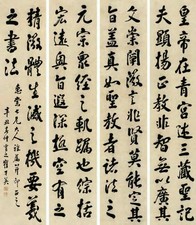 皇帝在青宮述三藏聖記
夫顯揚正教非智無以廣其
文崇闡微言非賢莫能定其
旨蓋真如聖教者諸法之
元宗眾經之軌躅也綜括
宏遠奧旨遐深極空有之
精微體生滅之機要羲
之書法